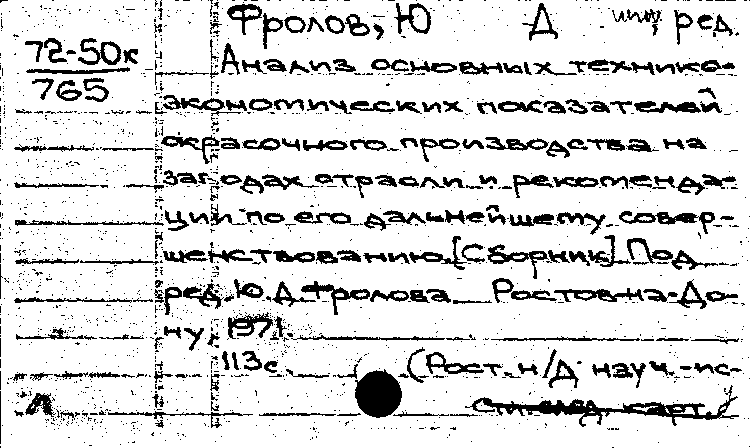 Фролов, Ю Д инж, ред.
72-50к
765
Анализ основных технико-
экономических показателей
окрасочного производства на
заводах отрасли и рекоменда-
ции по его дальнейшему совер-
шенствованию. [Сборник] Под
ред. Ю. Д. Фролова. Ростов-на-До-
ну, 1971.
113с.
(Рост. н/Д науч.-ис-
след. карт.
Л